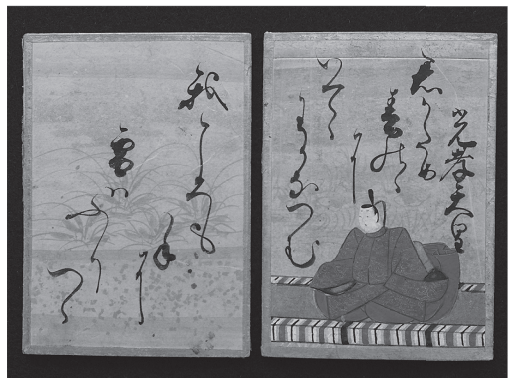 光孝天皇
君かため
春の野
に
いてゝ
わかなつむ
我ころも
手
に
雪は
ふり
つゝ